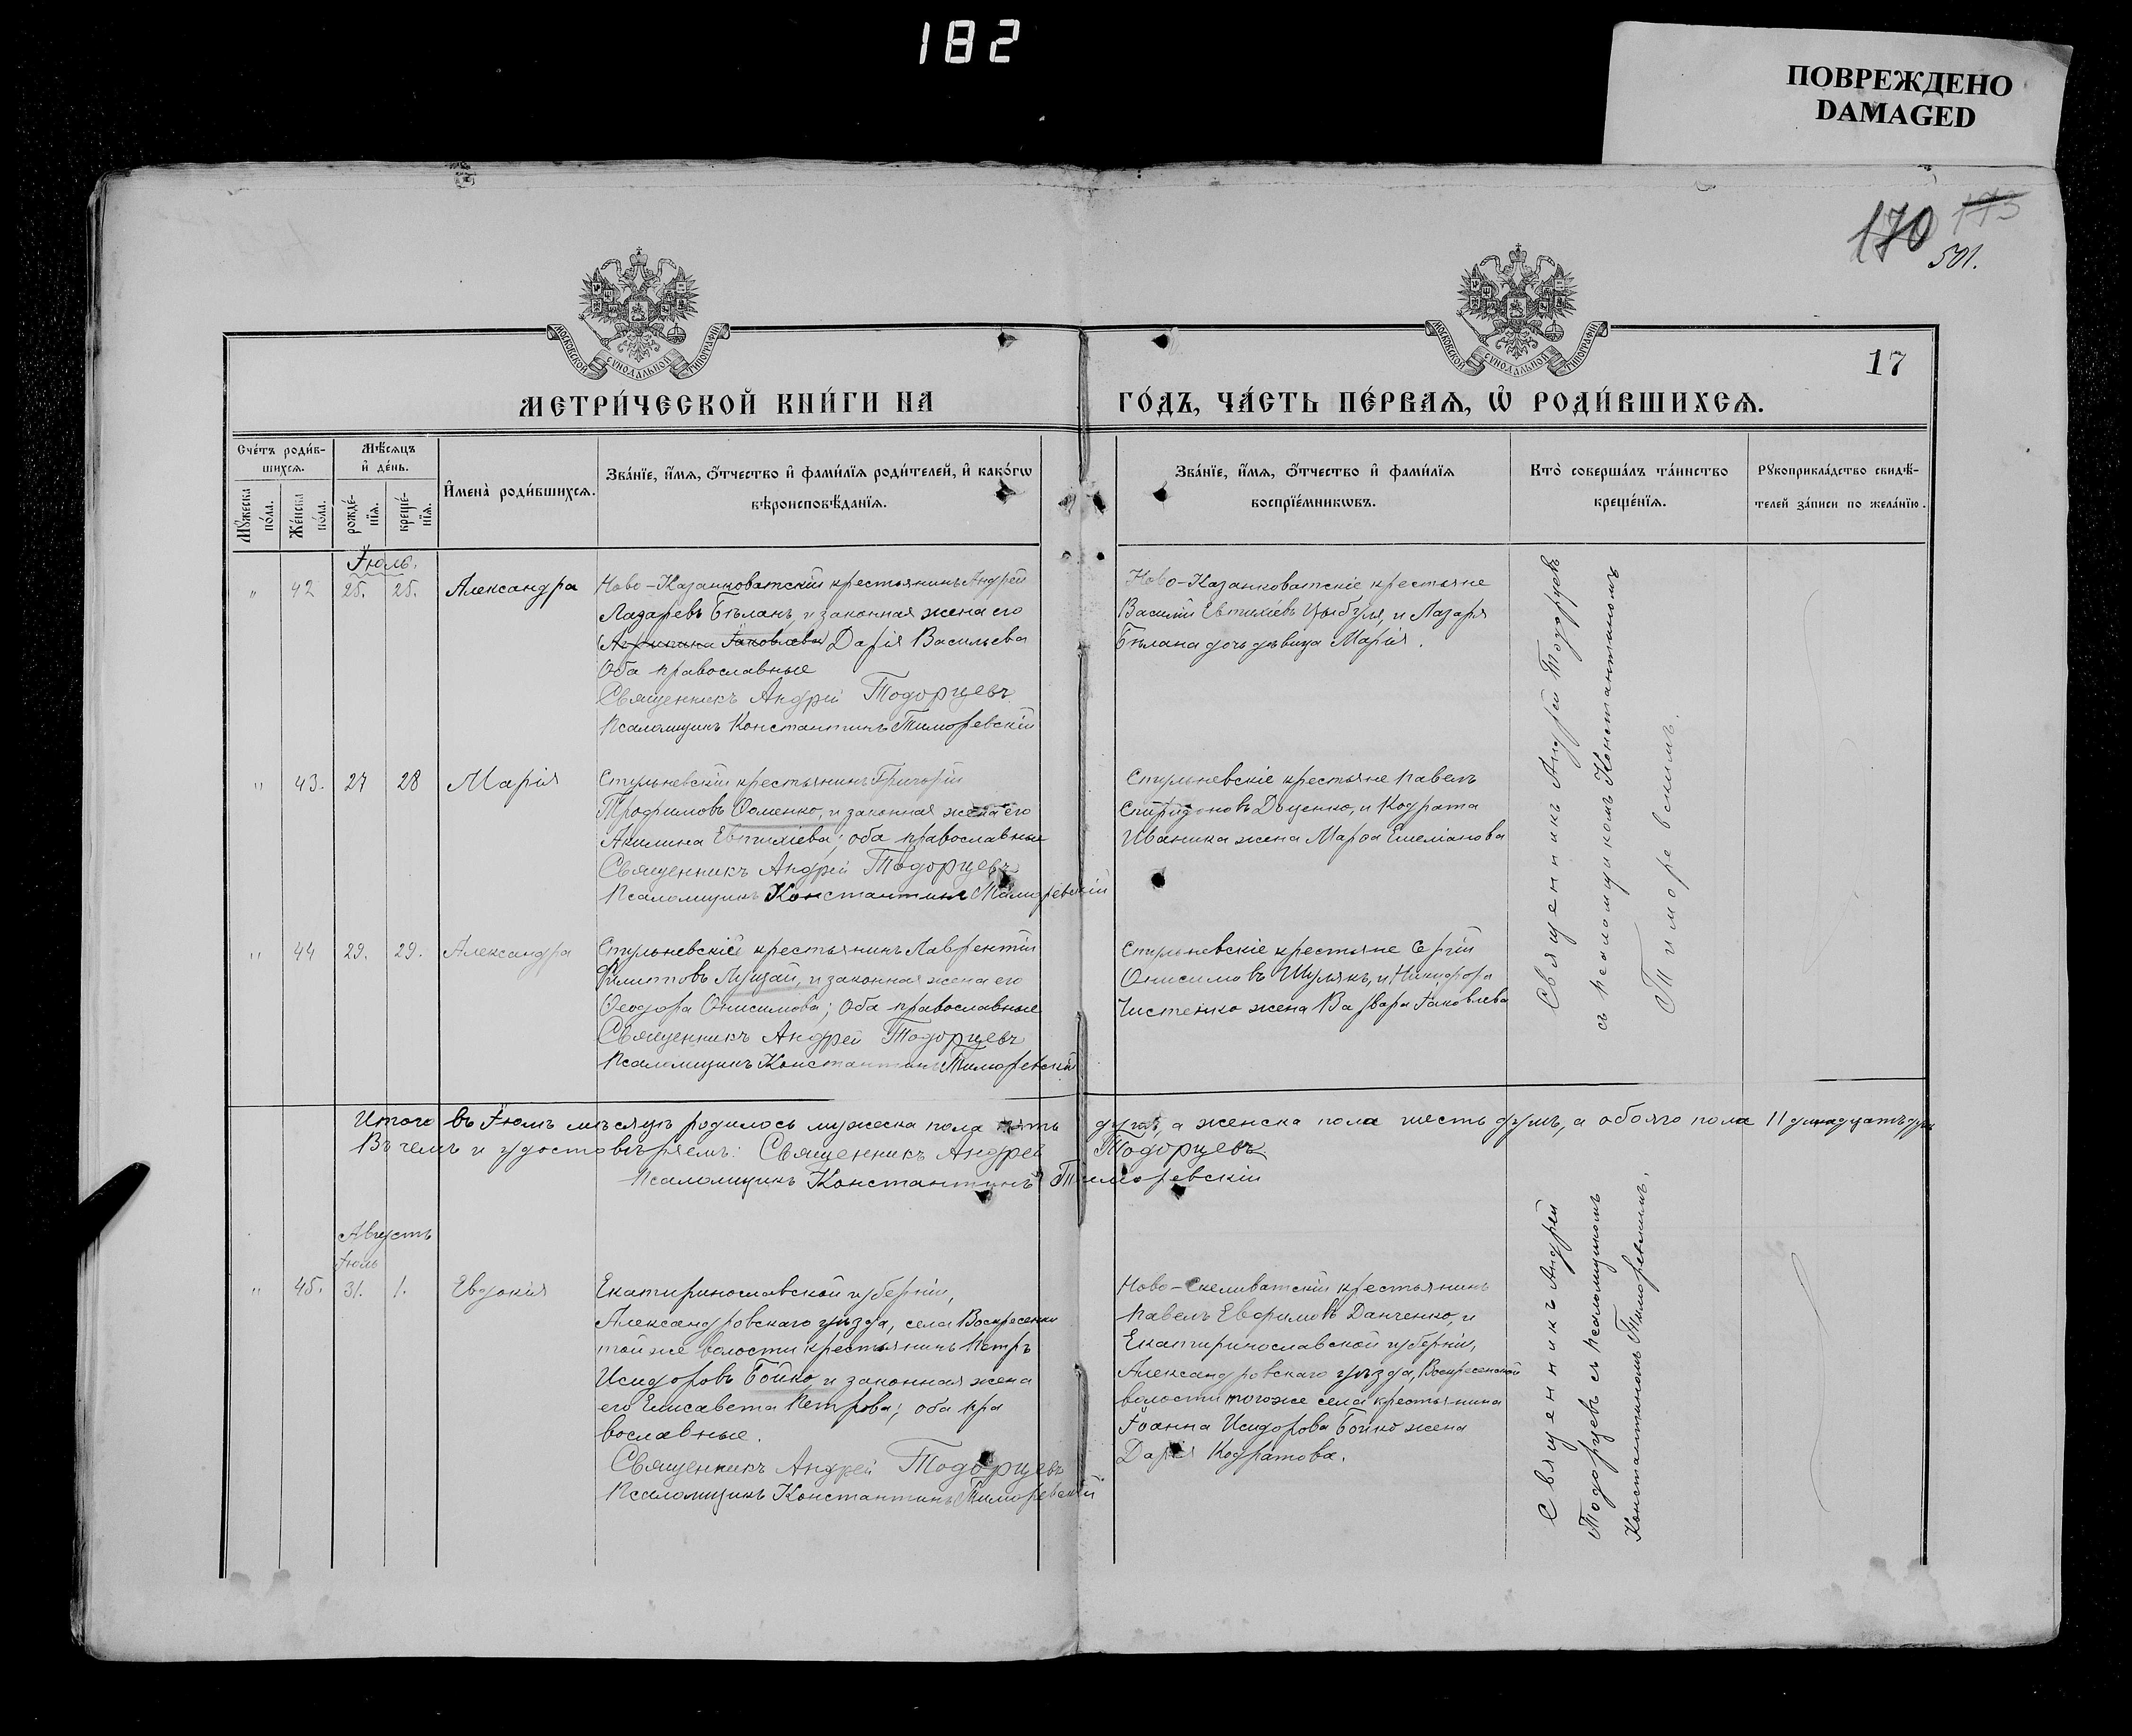 182
ПОВРЕЖДЕНО
DAMAGED
170 173
501.
МОСКОВСКОЙ СѴНОДАЛЬНОЙ ТИПОГРАФІИ
МОСКОВСКОЙ СѴНОДАЛЬНОЙ ТИПОГРАФІИ
17
МЕТРИ́ЧЕСКОЙ КНИ́ГИ НА ГО́ДЪ, ЧА́СТЬ ПЕ́РВАѦ, Ѡ҆ РОДИ́ВШИХСѦ.
Сче́тъ роди́в-
шихсѧ.
Мꙋ́жеска по́ла.
Же́нска по́ла.
Мѣ́сѧцъ
и҆ де́нь.
рожде́-
нїѧ.
креще́-
нїѧ.
И҆мена̀ роди́вшихсѧ.
Зва́нїе, и҆́мѧ, ѻ҆́тчество и҆ фами́лїѧ роди́телей, и҆ како́гѡ
вѣроисповѣ́данїѧ.
Зва́нїе, и҆́мѧ, ѻ҆́тчество и҆ фами́лїѧ
воспрїе́мникѡвъ.
Кто̀ соверша́лъ та́инство
креще́нїѧ.
Рꙋкоприкла́дство свидѣ́-
телей за́писи по жела́нїю.
Іюль.
" 42 25. 25. Александра
Ново-Казанковатскій крестьянинъ Андрей
Лазаревъ Бѣланъ, и законная жена его
Іаковлева) Дарія Васильева
Оба православные
Священникъ Андрей Тодорцевъ
Псаломщикъ Константинъ Тиморевскій
Ново-Казанковатскіе крестьяне
Василій Евтихіевъ Цыбуля, и Лазаря
Бѣлана дочь дѣвица Марія.
" 43. 27 28 Марія
Стульневскій крестьянинъ Григорій
Трофимовъ Ѳоменко, и законная жена его
Акилина Евтихіева; оба православные
Священникъ Андрей Тодорцевъ
Псаломщикъ Константинъ Тиморевскій
Стульневскіе крестьяне Павелъ
Спиридоновъ Доценко, и Кодрата
Иваника жена Марѳа Емеліанова
" 44 29. 29. Александра
Стульневскій крестьянинъ Лаврентій
Филиповъ Лущай, и законная жена его
Ѳеодора Онисимова; Оба православные
Священникъ Андрей Тодорцевъ
Псаломщикъ Константинъ Тиморевскій
Стульневскіе крестьяне Сергій
Онисимовъ Шулякъ, и Никифора
Чистенко жена Варвара Іаковлева
Священникъ Андрей Тодорцевъ
съ псаломщикомъ Константиномъ
Тиморевскимъ.
Итого въ Іюлѣ мѣсяцѣ родилось мужеска пола пять душъ, а женска пола шесть душъ, а обоего пола 11 одинадцать душъ
Въ чемъ и удостовѣряемъ: Священникъ Андрей Тодорцевъ
Псаломщикъ Константинъ Тиморевскій
Августъ
Іюль
" 45. 31. 1. Евдокія
Екатиринославской губерніи,
Александровскаго уѣзда, села Воскресенки
той же волости крестьянинъ Петръ
Исидоровъ Бойко и законная жена
его Елисавета Петрова; оба пра
вославные.
Священникъ Андрей Тодорцевъ
Псаломщикъ Константинъ Тиморевскій
Ново-Скеливатскій крестьянинъ
Павелъ Евфимовъ Данченко, и
Екатиринославской губерніи,
Александровскаго уѣзда, Воскресенской
волости тогоже села крестьянина
Іоанна Исидорова Бойко жена
Дарія Кодратова.
Священникъ Андрей
Тодорцевъ съ псаломщикомъ
Константиномъ Тиморевскимъ.